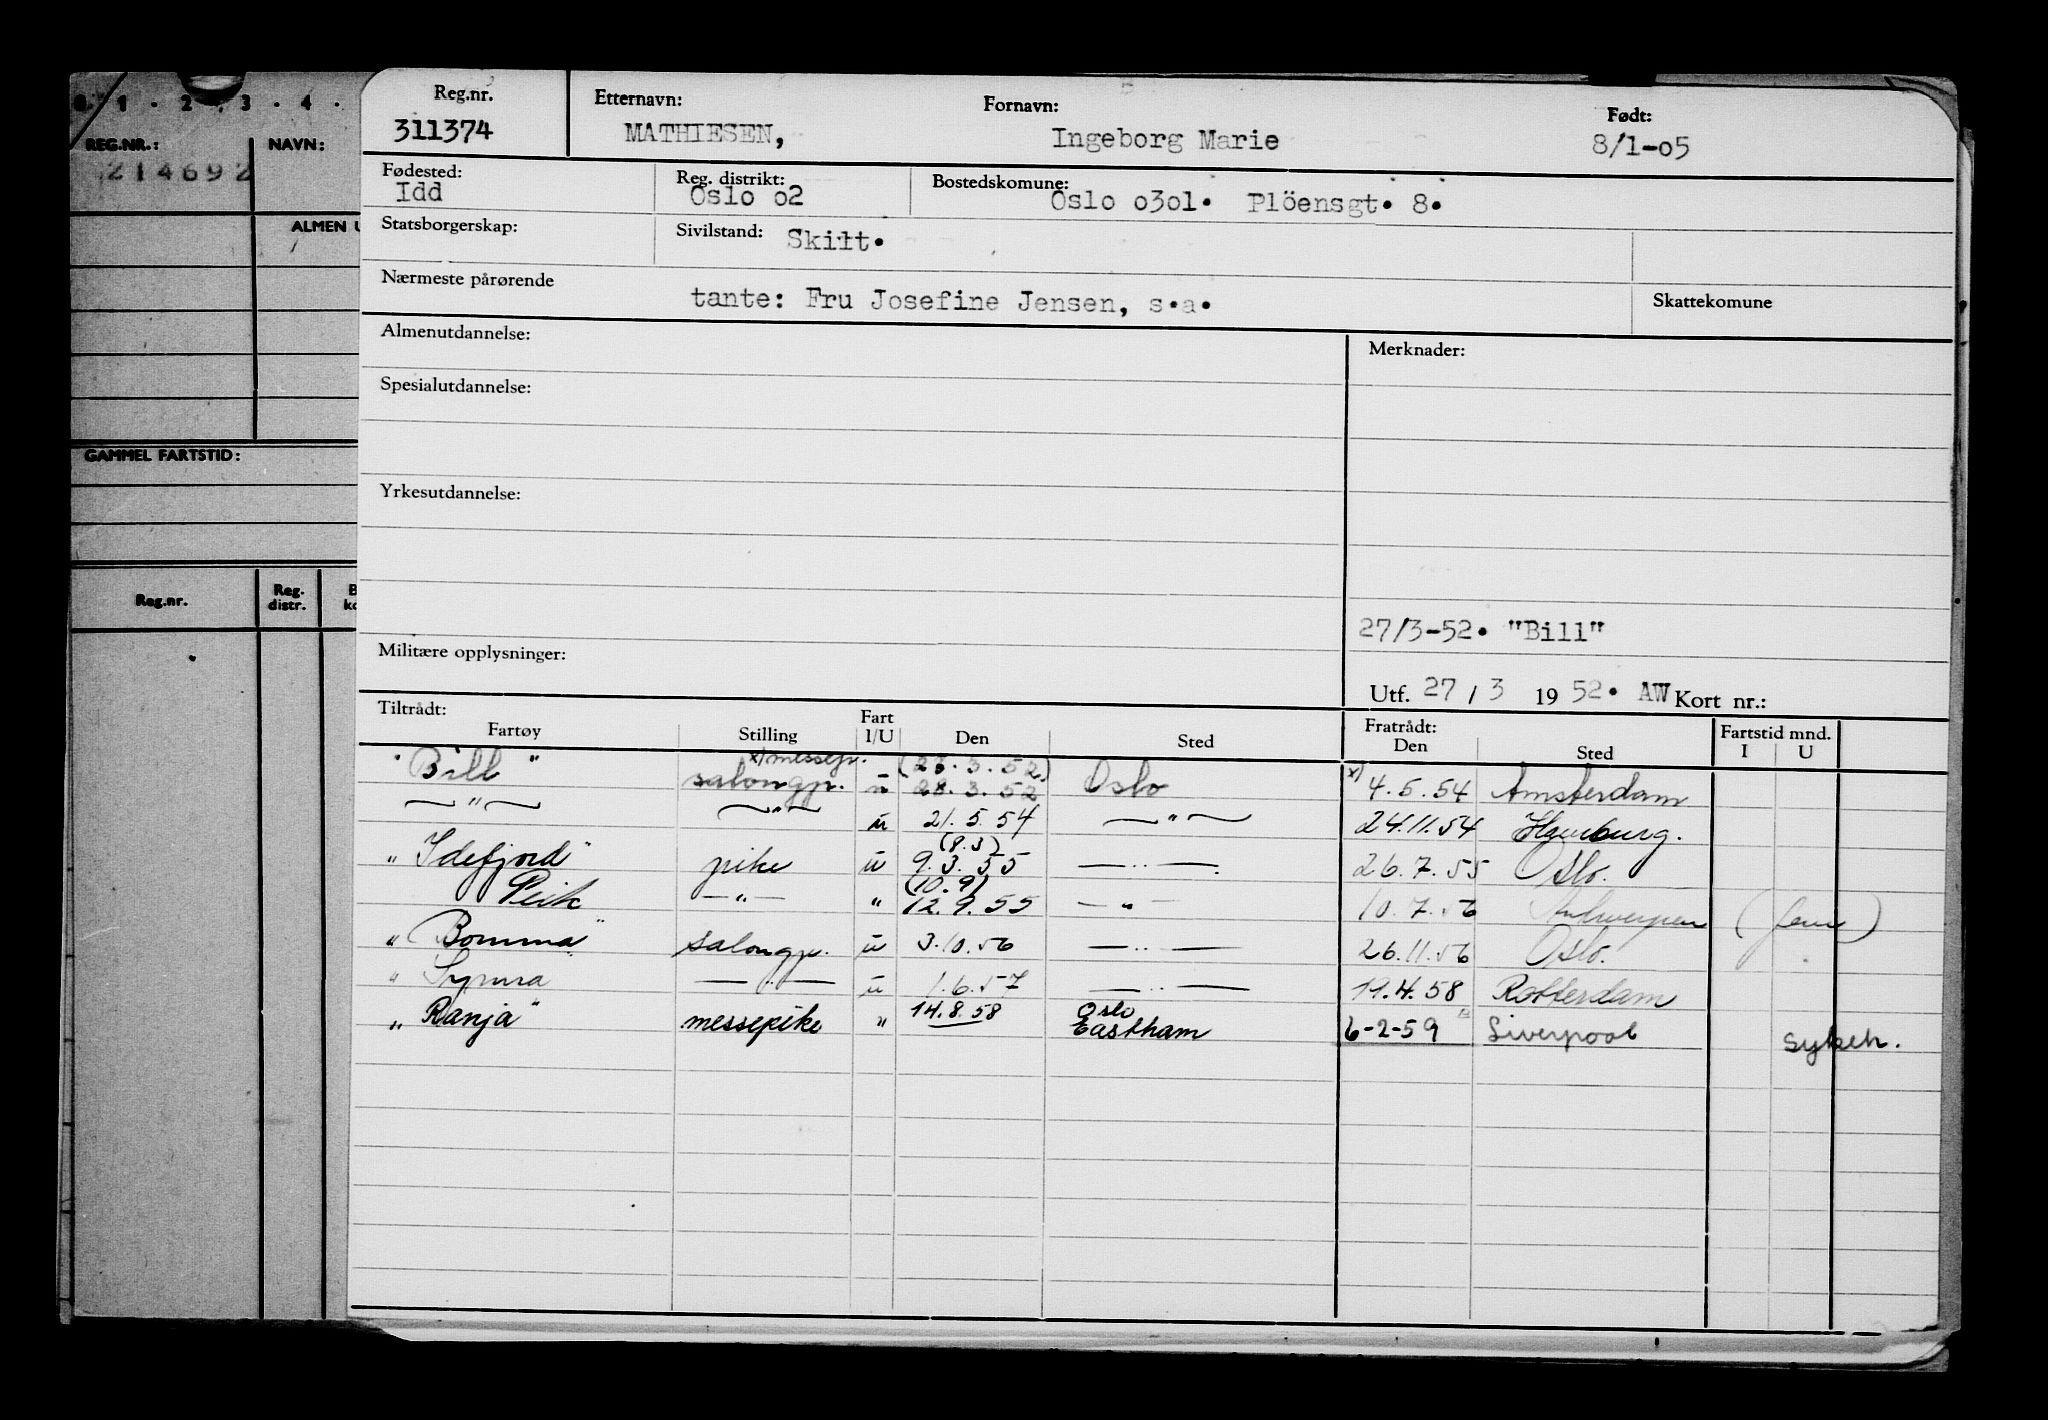 0 1 . 2 . 3 . 4 .
REG.NR.: NAVN:
214692
ALMEN U
GAMMEL FARTSTID:
Reg.nr. Reg. distr. B ko
Reg.nr. Etternavn: Fornavn: Født:
311374 MATHIESEN, Ingeborg Marie 8/1-o5
Fødested: Reg. distrikt: Bostedskomune:
Idd Oslo o2 Oslo o3o1. Plöensgt. 8.
Statsborgerskap: Sivilstand: Skilt.
Nærmeste pårørende
tante: Fru Josefine Jensen, s.a. Skattekomune
Almenutdannelse: Merknader:
Spesialutdannelse:
Yrkesutdannelse:
27/3-52. "Bill"
Militære opplysninger:
Utf. 27 / 3 19 52. AW Kort nr.:
Tiltrådt: Fart Fratrådt: Fartstid mnd.
Fartøy Stilling I/U Den Sted Den Sted I U
x) messep. (28.3.52)
"Bill" salongp. u 28.3.52 Oslo x) 4.5.54 Amsterdam
—"— —"— u 21.5.54 —"— 24.11.54 Hamburg.
(8.3)
"Idefjord" pike u 9.3.55 —"— 26.7.55 Oslo.
(10.9)
Peik —"— " 12.9.55 —"— 10.7.56 Antwerpen
"Bomma" salongp. u 3.10.56 —"— 26.11.56 Oslo.
"Synna —"— u 1.6.57 —"— 19.4.58 Rotterdam
Oslo
"Ranja" messepike " 14.8.58 Eastham 6-2-59 Liverpool sykeh.